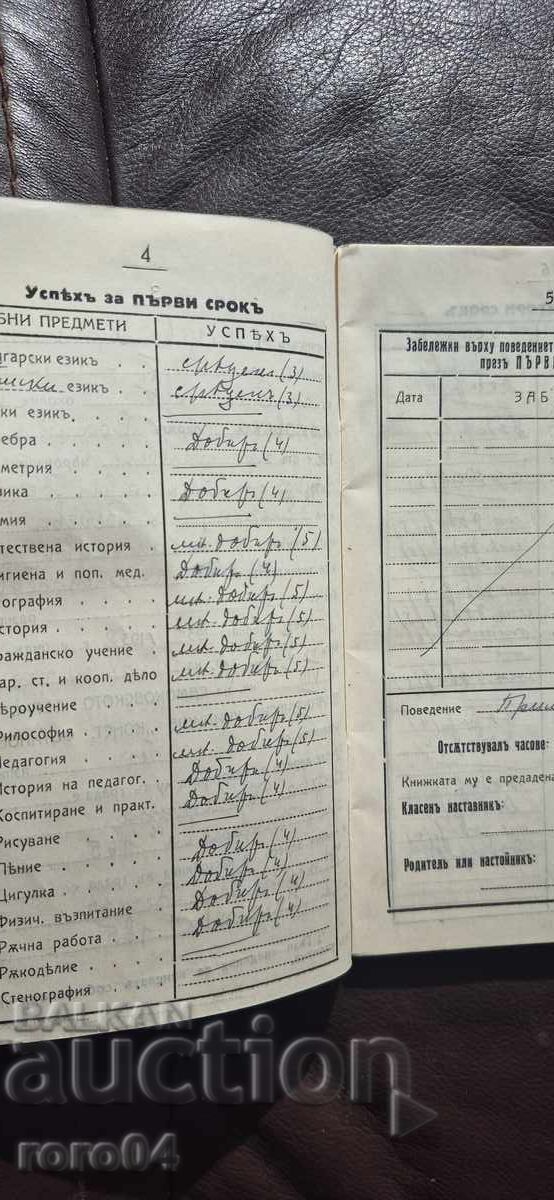 4
Успѣхъ за ПЪРВИ СРОКЪ
БНИ ПРЕДМЕТИ УСПѢХЪ
гарски езикъ . . срѣденъ (3)
нски езикъ . . срѣденъ (3)
ки езикъ . .
ебра . . . . Добъръ (4)
метрия . . . .
зика . . . . Добъръ (4)
мия . . . .
тествена история . мн. добъръ (5)
игиена и поп. мед. Добъръ (4)
ография . . . мн. добъръ (5)
стория . . . . мн. добъръ (5)
ражданско учение . мн. добъръ (5)
ар. ст. и кооп. дѣло мн. добъръ (5)
ѣроучение . . .
Философия . . . мн. добъръ (5)
Педагогия . . . мн. добъръ (5)
История на педагог. . Добъръ (4)
Воспитиране и практ. Добъръ (4)
Рисуване . . .
Пѣние . . . . Добъръ (4)
Цигулка . . . . Добъръ (4)
Физич. възпитание . Добъръ (4)
Рѫчна работа . . Добъръ (4)
Рѫкодѣлие . . .
Стенография . . .
5
Забележки върху поведениет
презъ ПЪРВИ
Дата ЗАБ
Поведение Прим
Отсѫтствувалъ часове:
Книжката му е предадена
Класенъ наставникъ:
Родитель или настойникъ:
BALKAN
auction
roro04